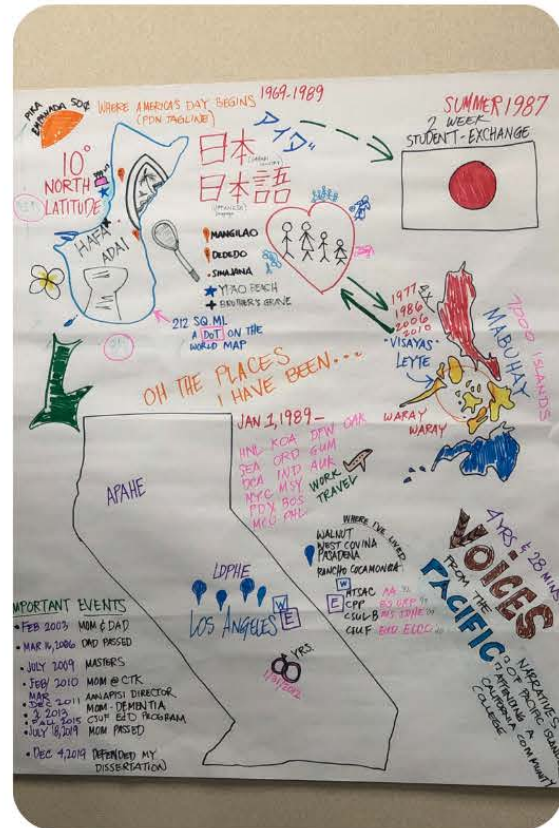 PIKA
EMPANADA 50¢
WHERE AMERICA'S DAY BEGINS
(PDN TAGLINE)
1969-1989
10°
NORTH
LATITUDE
HAFA
ADAI
日本
日本語
MANGILAO
DEDEDO
SINAJANA
YPAO BEACH
BROTHER'S GRAVE
212 SQ. MI.
A DOT ON THE
WORLD MAP
SUMMER 1987
2 WEEK
STUDENT-EXCHANGE
1977
1986
2006
2010
4X
"VISAYAS"
LEYTE
WARAY
WARAY
MABUHAY
7000 ISLANDS
OH THE PLACES
I HAVE BEEN...
JAN 1, 1989 -
HNL KOA DFW OAK
SEA ORD GUM
DCA IND AUK
NYC MSY
PDX BOS
MCO PHL
WORK
TRAVEL
APAHE
LDPHE
LOS ANGELES
W
E
YRS.
WHERE I'VE LIVED
WALNUT
WEST COVINA
PASADENA
RANCHO CUCAMONGA
W
E
MTSAC AA
CPP
CSULB
CSUF EdD
4 YRS & 28 MINS
VOICES
FROM THE
PACIFIC
NARRATIVES
OF PACIFIC
ATTENDING A
CALIFORNIA COMMUNITY
COLLEGE
IMPORTANT EVENTS
• FEB 2003 MOM & DAD
• MAR 16, 2006 DAD PASSED
• JULY 2009 MASTERS
• FEB 2010 MOM @ CTK
MAR
• DEC 2011 AANAPISI DIRECTOR
• 2013 MOM - DEMENTIA
• FALL 2015 CSUF EdD PROGRAM
• JULY 18, 2019 MOM PASSED
• DEC 4, 2019 DEFENDED MY
DISSERTATION